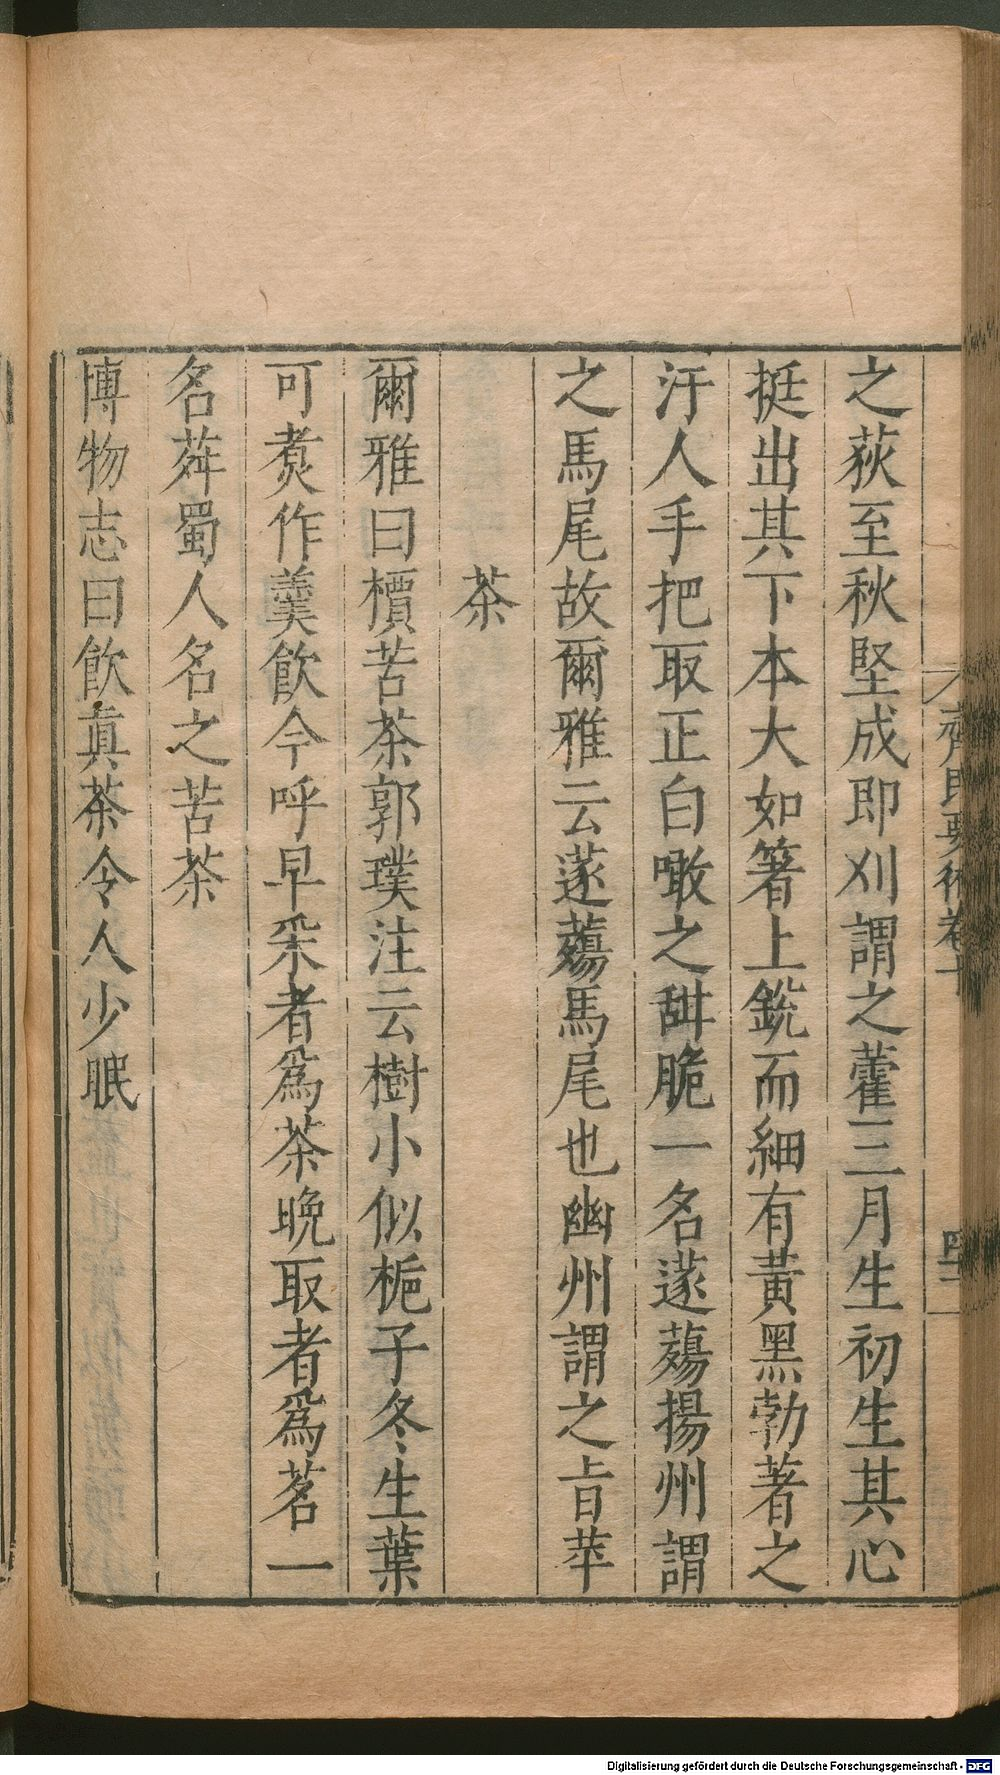 之荻至秋堅成即刈謂之藿三月生初生其心
挺出其下本大如箸上銳而細有黃黑勃著之
汙人手把取正白噉之甜脆一名蓫薚揚州謂
之馬尾故爾雅云蓫薚馬尾也幽州謂之旨苹
茶
爾雅曰檟苦茶郭璞注云樹小似梔子冬生葉
可煑作羹飲今呼早采者爲茶晚取者爲茗一
名荈蜀人名之苦茶
博物志曰飲真茶令人少眠
齊民要術卷十
四二
Digitalisierung gefördert durch die Deutsche Forschungsgemeinschaft - DFG